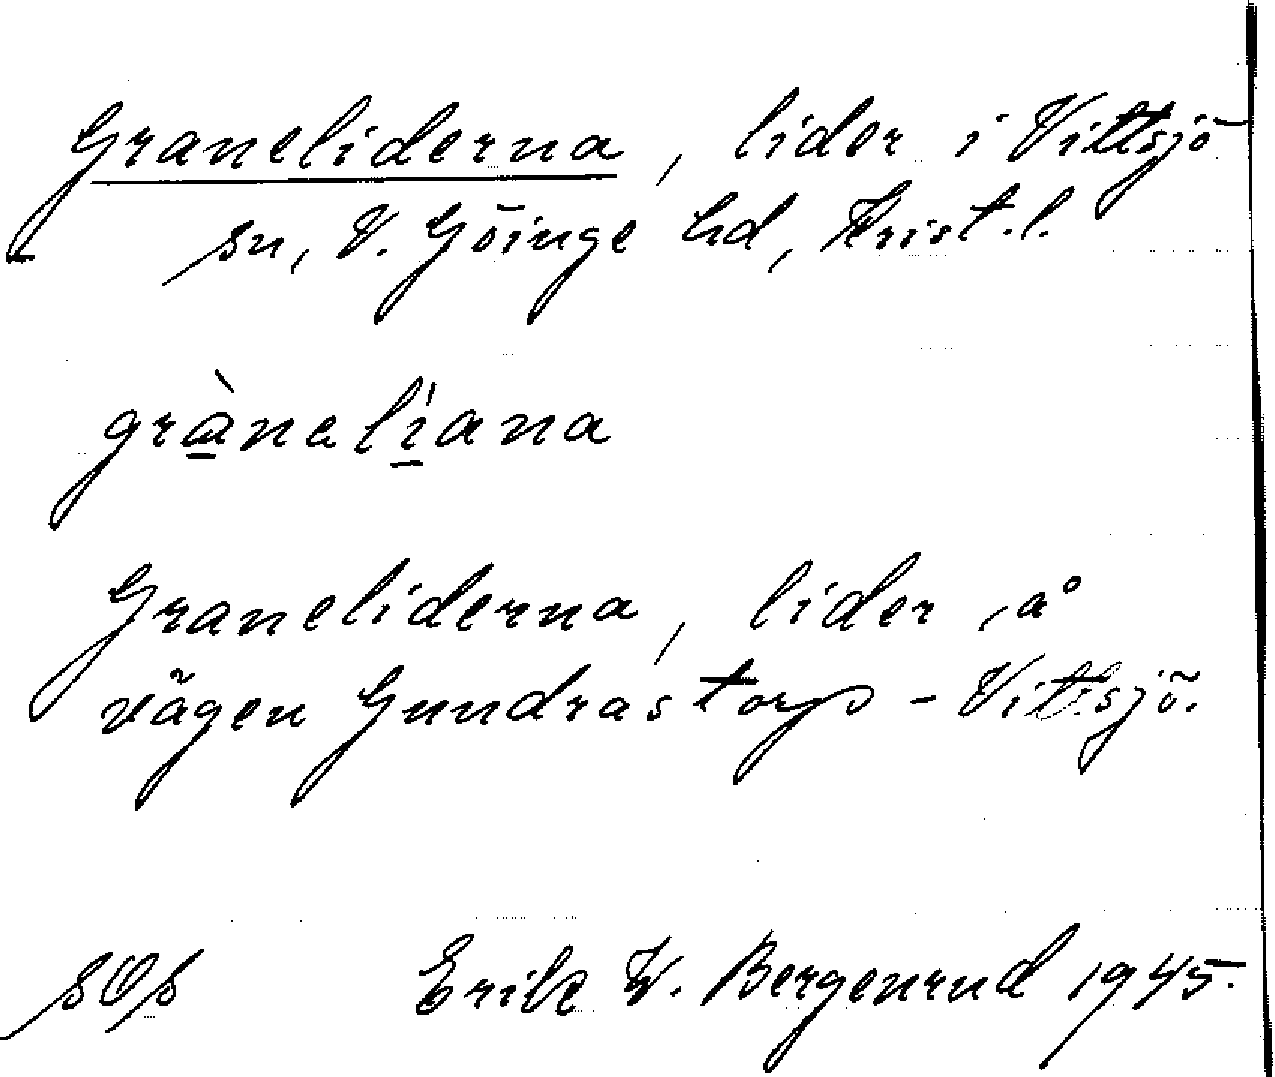 Graneliderna, lider i Vittsjö
sn, V. Göinge hd, Krist.l.
grànalíana
Graneliderna, lider å
vägen Gundrastorp - Vittsjö.
Erik W. Bergenrud 1945.